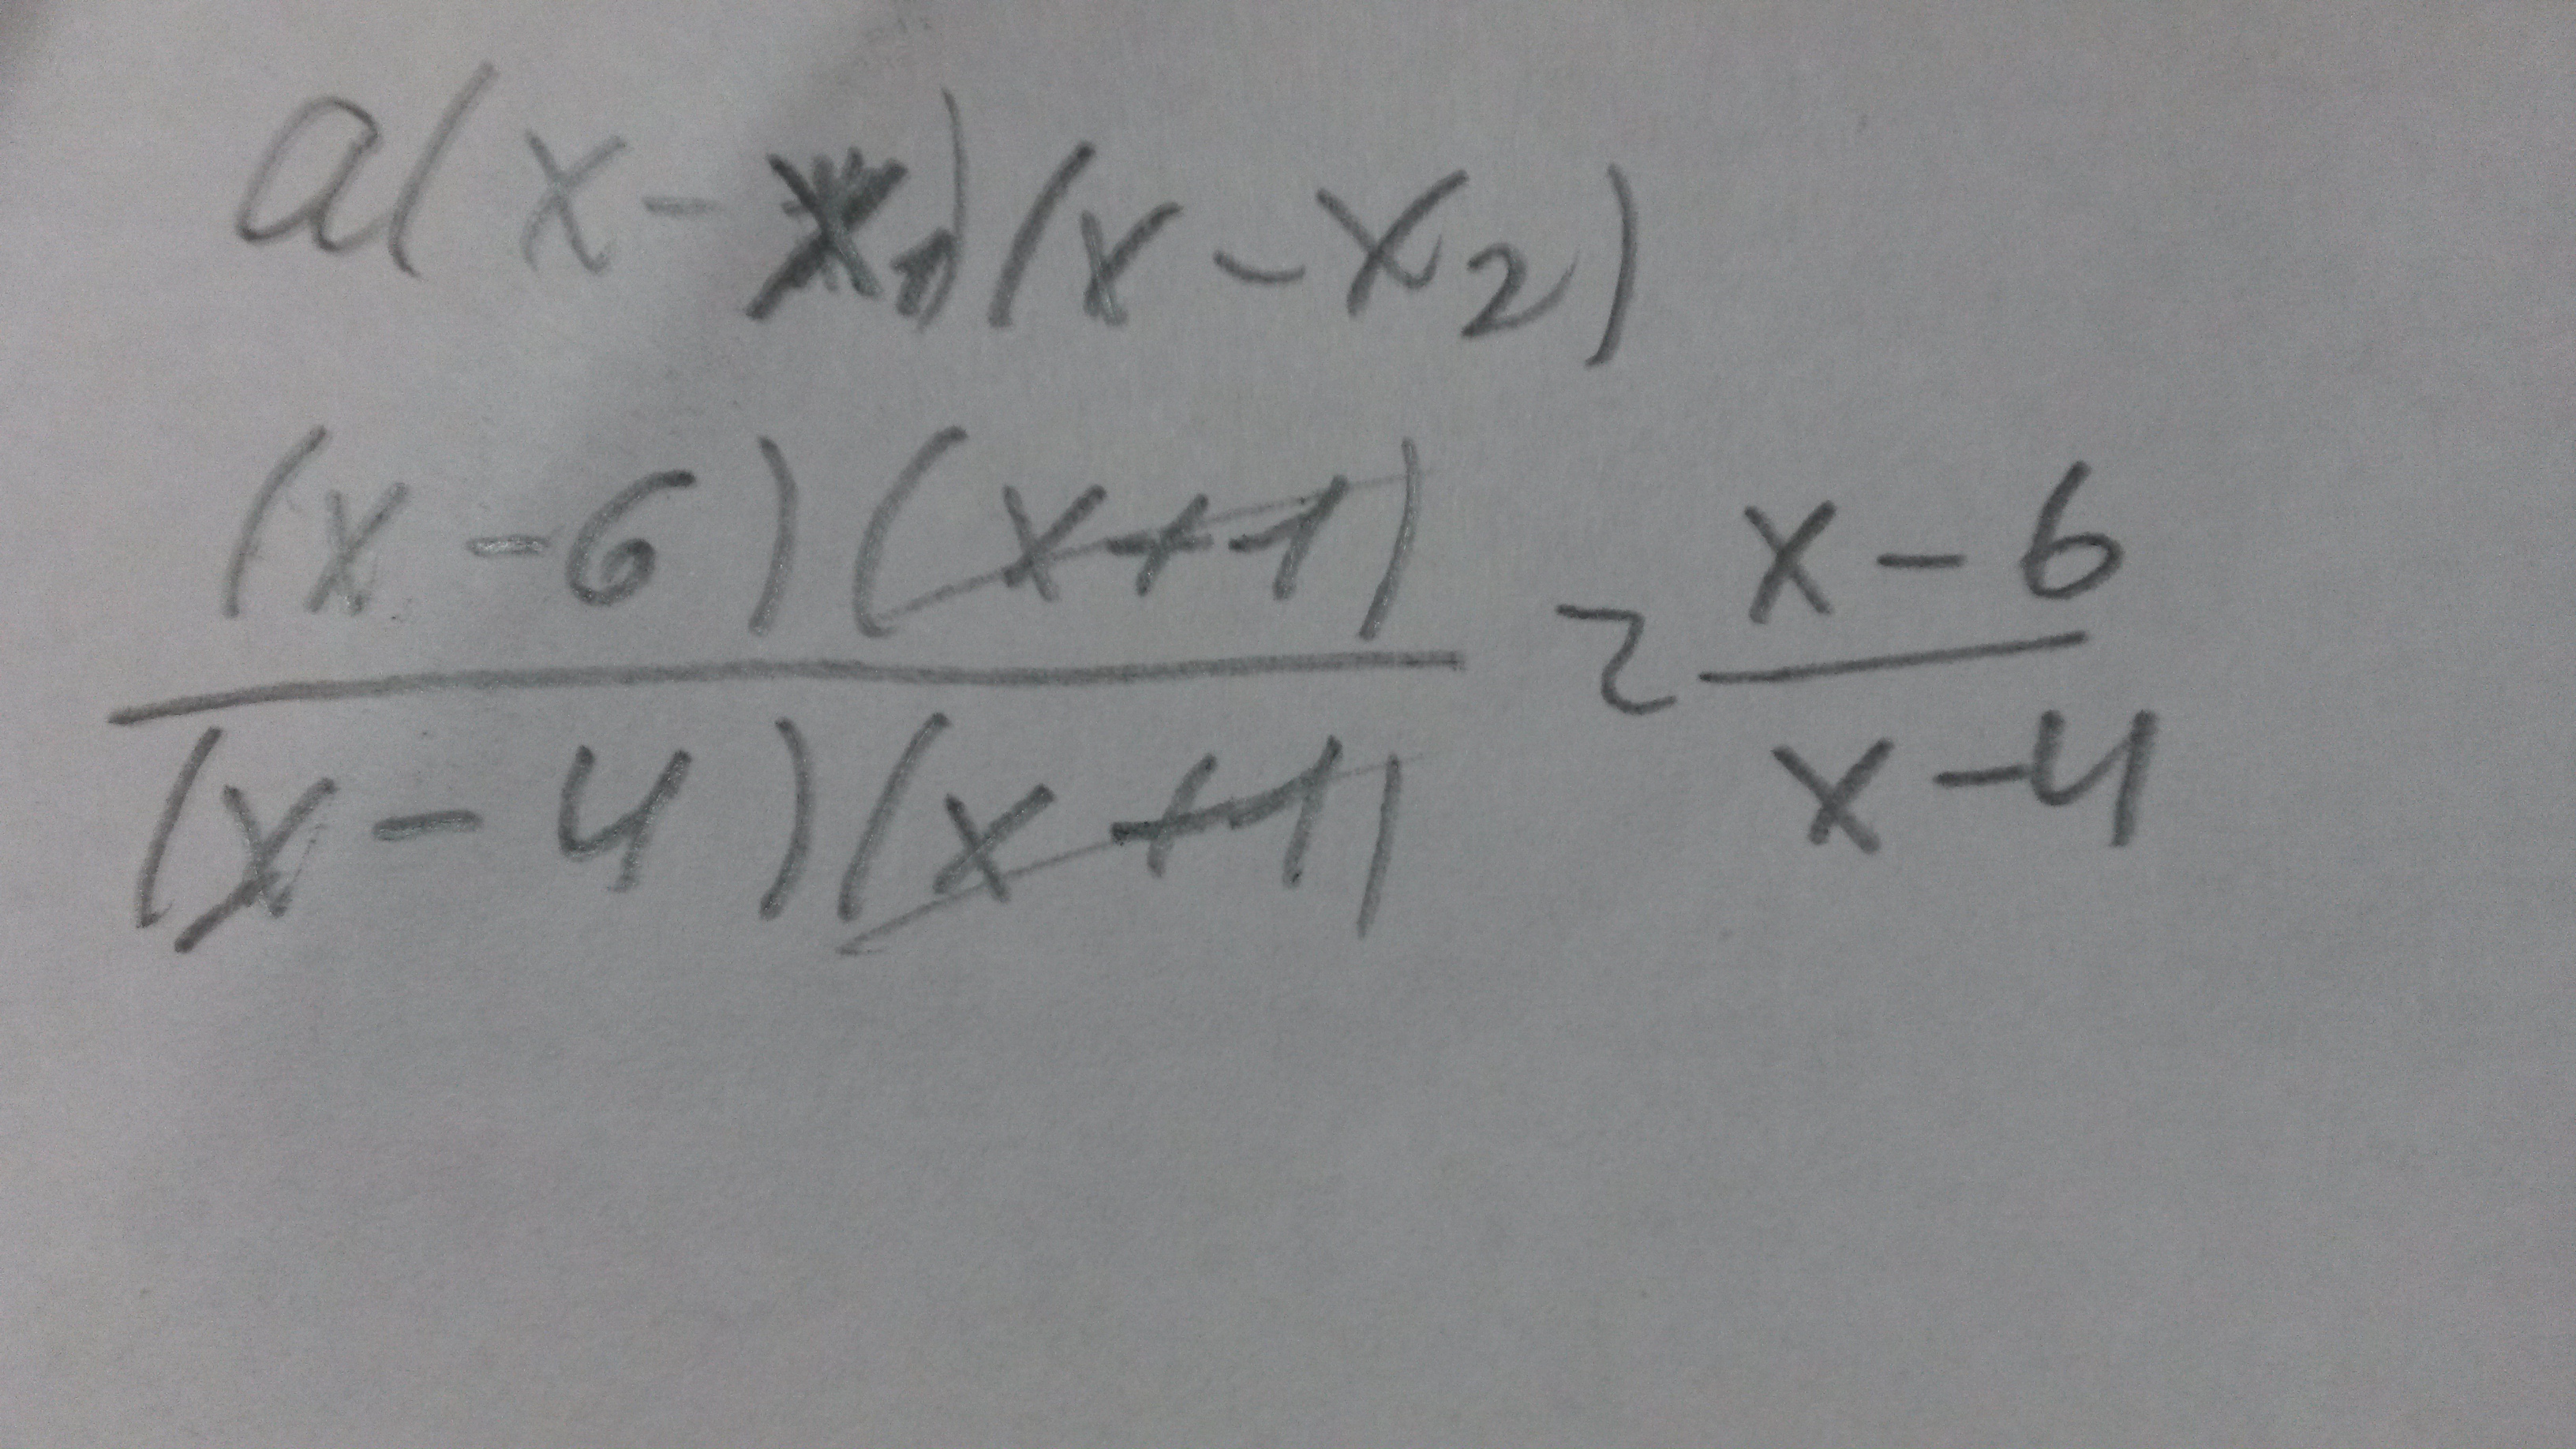 a(x-x₁)(x-x₂)
(x-6)(x+1) = x-6
(x-4)(x+1) x-4